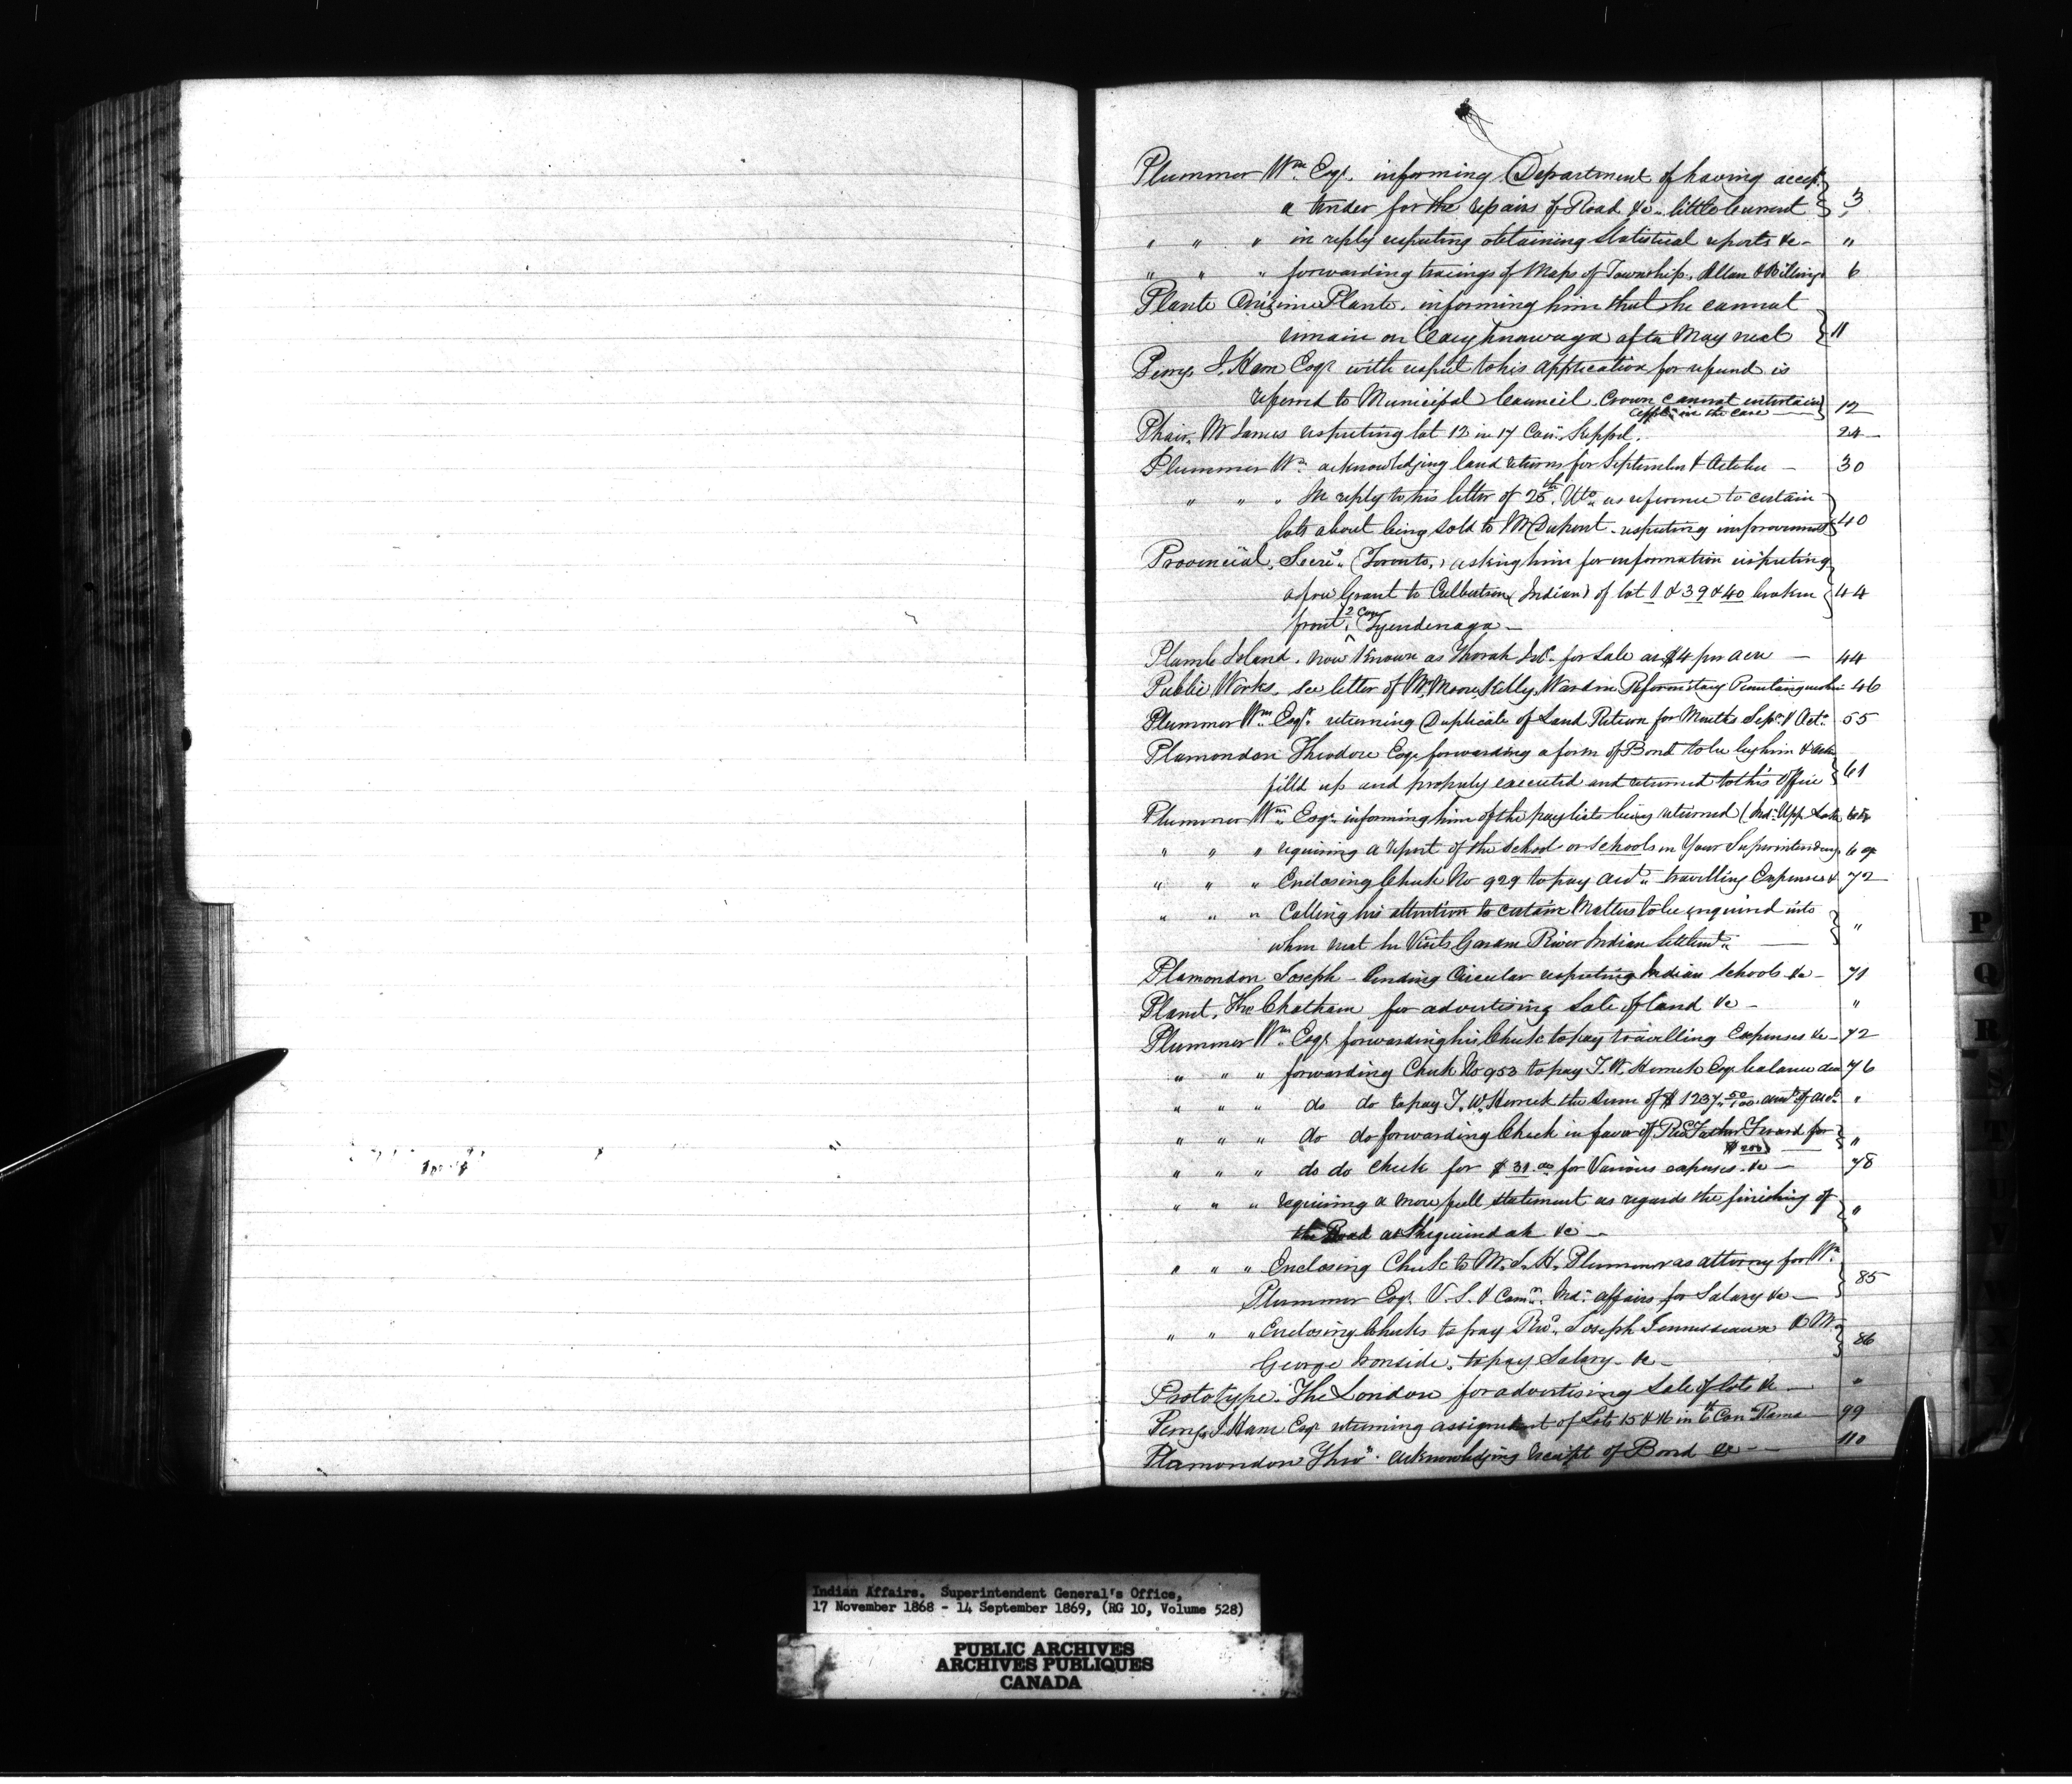 Plummer Wm. Esqr. informing Department of having accept.
a tender for the repairs of Road &c. little Current 3
" " " in reply respecting obtaining Statistical reports &c - "
" " " forwarding tracings of Maps of Township. Allan & Billings 6
Plante Onizime Plante. informing him that he cannot
remain on Caughnawaga after May next 11
Perry, J. Ham Esqr with respect to his application for refund is
referred to Municipal Council. Crown cannot entertain
appln in the case 12
Phair, Mr James respecting lot 12 in 17 Con. Keppel. 24
Plummer Wm. acknowledging land returns for September & October - 30
" " " In reply to his letter of 25th Ulto as reference to certain
lots about being sold to Mr Dupont - respecting improvements 40
Provincial, Secrey. (Toronto,) asking him for information respecting
a free Grant to Culbertson (Indian) of lot 1 & 39 & 40 broken 44
front, 2 Con Tyendenaga -
Plumb Island. now Known as Thorah Isd. for Sale at $4 per acre - 44
Public Works. See letter of Wm. Moore Kelly, Warden Reformatory Penetanguishe 46
Plummer Wm. Esqr. returning Duplicate of Land Return for Months Sepr. & Octr. 55
Plamondon Theodore Esqr forwarding a form of Bond to be by him &
filld up and properly executed and returned to this Office 61
Plummer Wm. Esqr. informing him of the paylists being returned (Ind. Upp. Lake
" " " requiring a report of the School or Schools in Your Superintendency
" " " Enclosing Check No 929 to pay acct. travelling Expenses & 72
" " " Calling his attention to certain Matters to be enquired into
when next he Visits Garden River Indian Settlemt. "
Plamondon Joseph - sending Circular respecting Indian Schools &c - 71
Planet, The Chatham for advertising Sale of land &c - "
Plummer Wm. Esqr forwarding his Check to pay travelling Expenses &c - 72
" " " forwarding Check No 953 to pay T. W. Herrick Esqr balance due 76
" " " do do to pay T. W. Herrick the sum of $ 1237 50/100 amt. of acct. "
" " " do do forwarding Check in favor of Revd Father for
$200) "
" " " do do check for $ 31.00 for Various expenses. &c - 78
" " " requiring a more full statement as regards the finishing of
the Road at Sheguiandah &c - "
" " " Enclosing Check to Mr. J. H. Plummer as attorney for Wm.
Plummer Esqr. V. S. & Comr. Ind. affairs for Salary &c - 85
" " " Enclosing Checks to pay Revd. Joseph Jennesseaux & Mr
George Ironside, to pay Salary - &c - 86
Prototype. The London for advertising Sale of lots &c - "
Perry, J. Ham Esqr returning assignment of Lots 15 & 16 in 6th Con Rama 99
Plamondon Theo. acknowledging receipt of Bond &c - 110
P
Q
R
S
T
Indian Affairs. Superintendent General's Office,
17 November 1868 - 14 September 1869, (RG 10, Volume 528)
PUBLIC ARCHIVES
ARCHIVES PUBLIQUES
CANADA